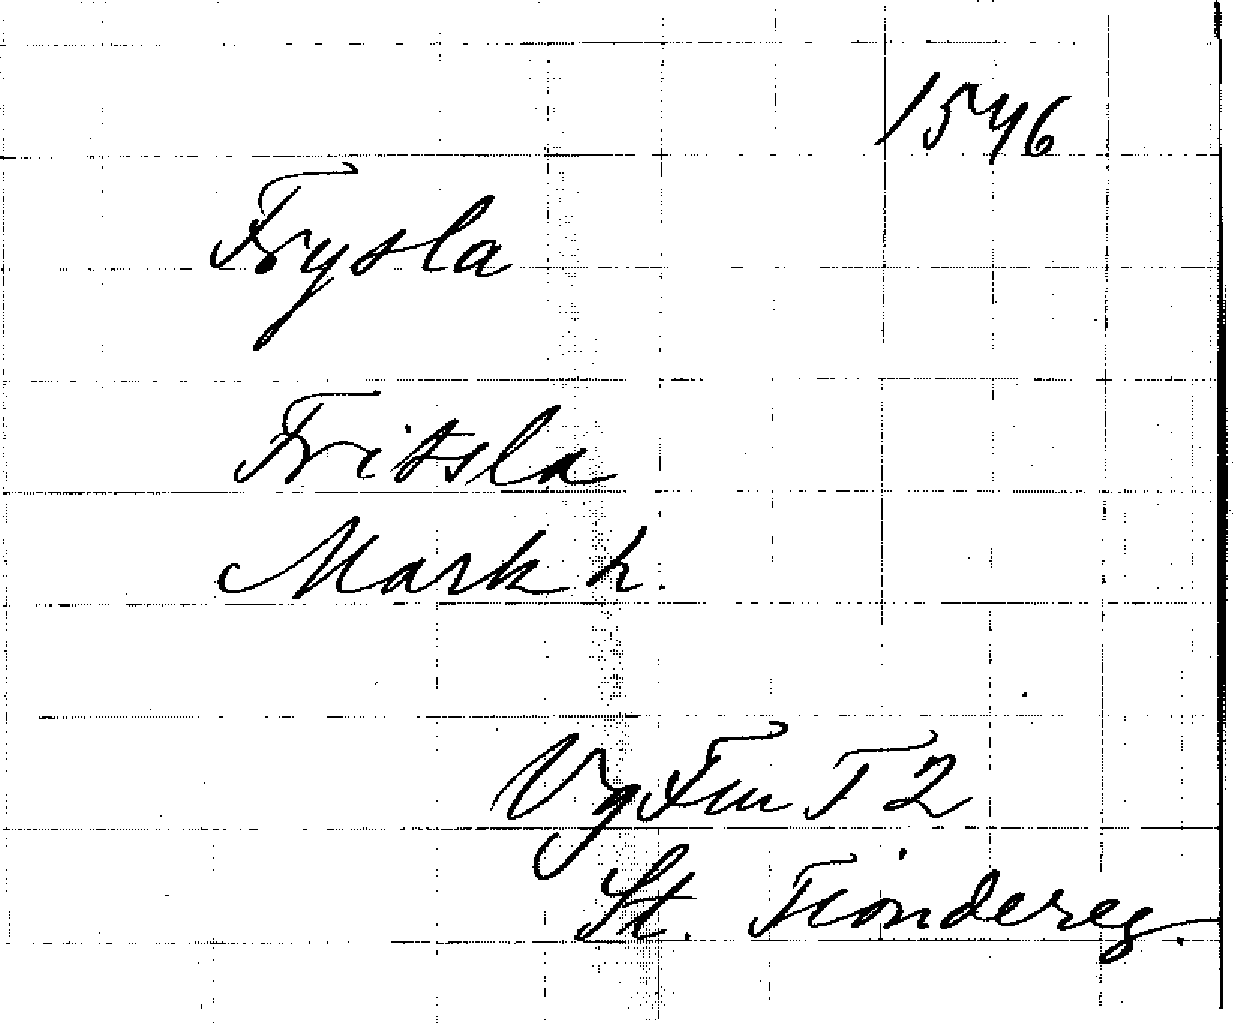 1546
Frysla
Fritsla
Mark h.
Vg Fm T 2
St. Tiondereg.